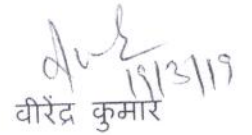 19/3/19
वीरेंद्र कुमार